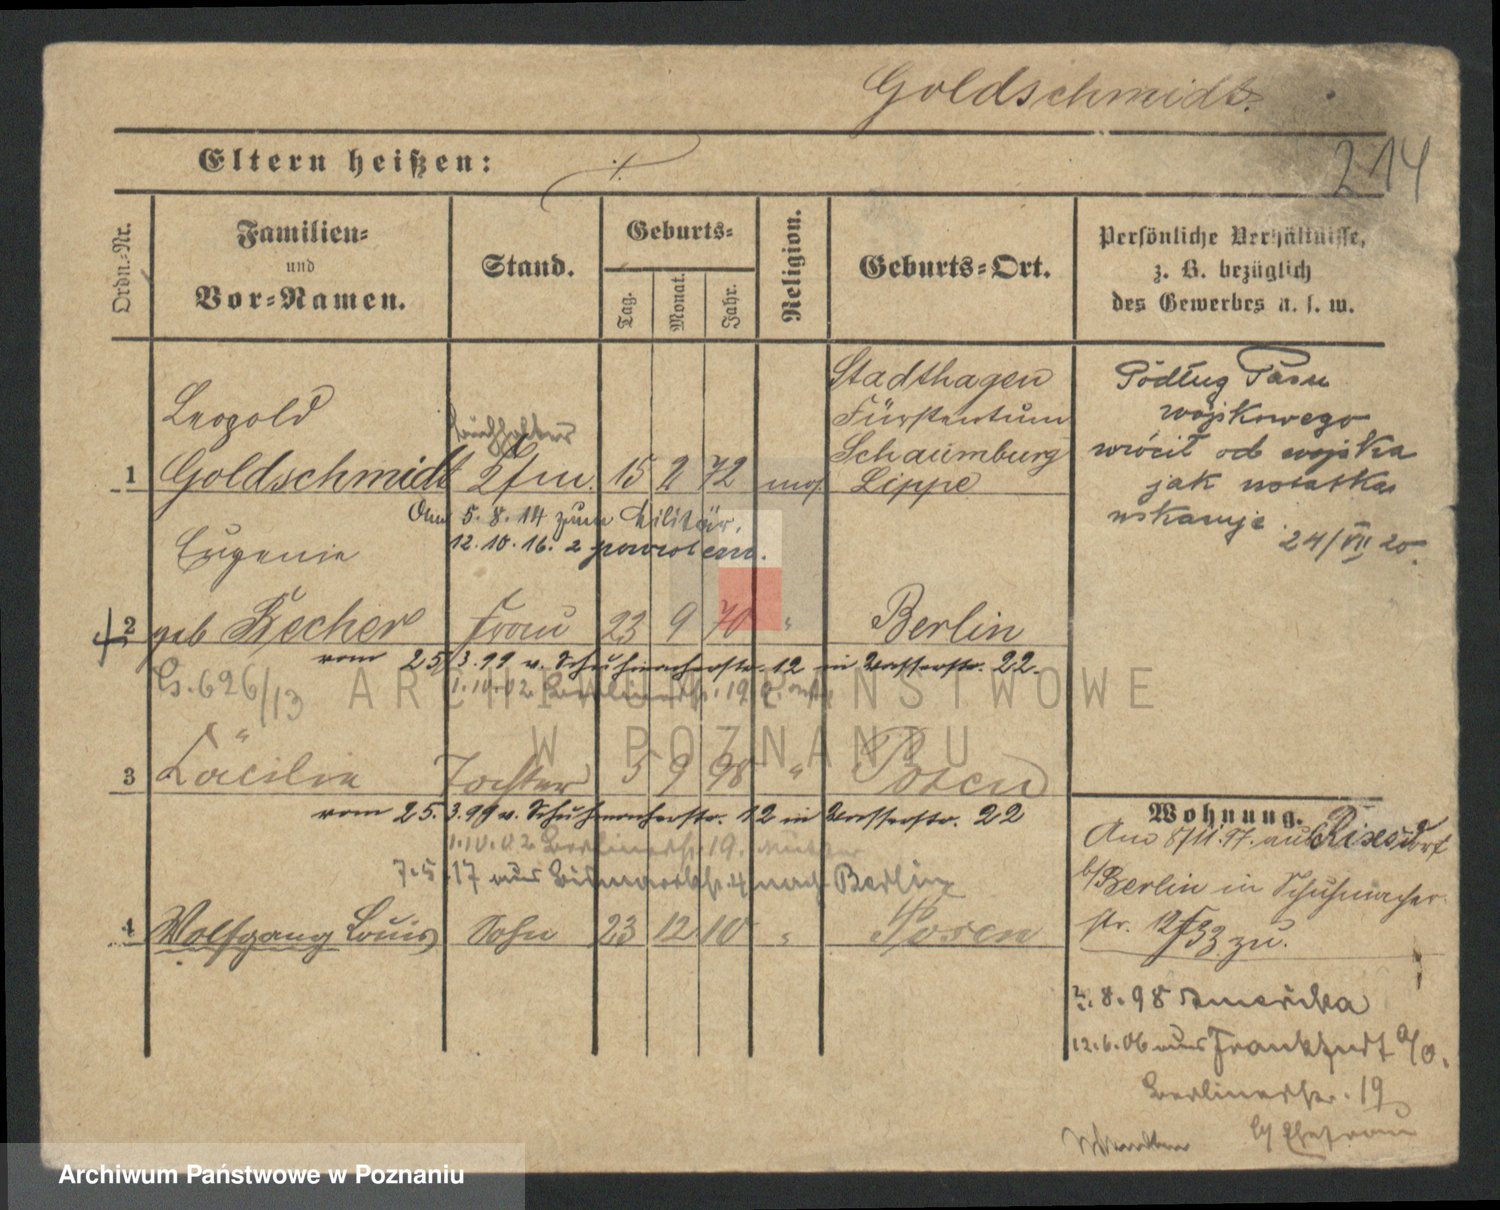 Goldschmidt.
214
Eltern heißen: ./.
Ordn.-Nr.
Familien-
und
Vor-Namen.
Stand.
Geburts-
Tag.
Monat.
Jahr.
Religion.
Geburts-Ort.
Persönliche Verhältnisse,
z. B. bezüglich
des Gewerbes u. s. w.
Stadthagen
Fürstentum
Schaumburg
Leopold
Buchhalter
1 Goldschmidt Kfm. 15 2 72 mos. Lippe
5.8.14 zum Militär.
12.10.16. z powrotem.
Podług Pasu
wojskowego
wrócił od wojska
jak notatka
wskazuje
24/VII 20.
Eugenie
2 geb Becher Frau 23 9 70 " Berlin
vom 25/3.99 v. Schuhmacherstr. 12 in Wasserstr. 22.
G. 626/13
1.10.02 Berlinerstr. 19
3 Cäcilie Tochter 5 9 98 " Posen
vom 25.3.99 v. Schuhmacherstr. 12 in Wasserstr. 22
1.10.02 Berlinerstr. 19. Mutter
7.5.17 aus Bismarckstr. 4 nach Berlin
4 Wolfgang Louis Sohn 23 12 10 " Posen
Wohnung.
Am 8/11.97. aus Rixsdorf
b/Berlin in Schuhmacher
str. 12 zu.
2.8.98 Amerika
12.6.06 aus Frankfurt a/O.
Berlinerstr. 19
b/ Ehefrau
ARCHIWUM PAŃSTWOWE
W POZNANIU
Archiwum Państwowe w Poznaniu